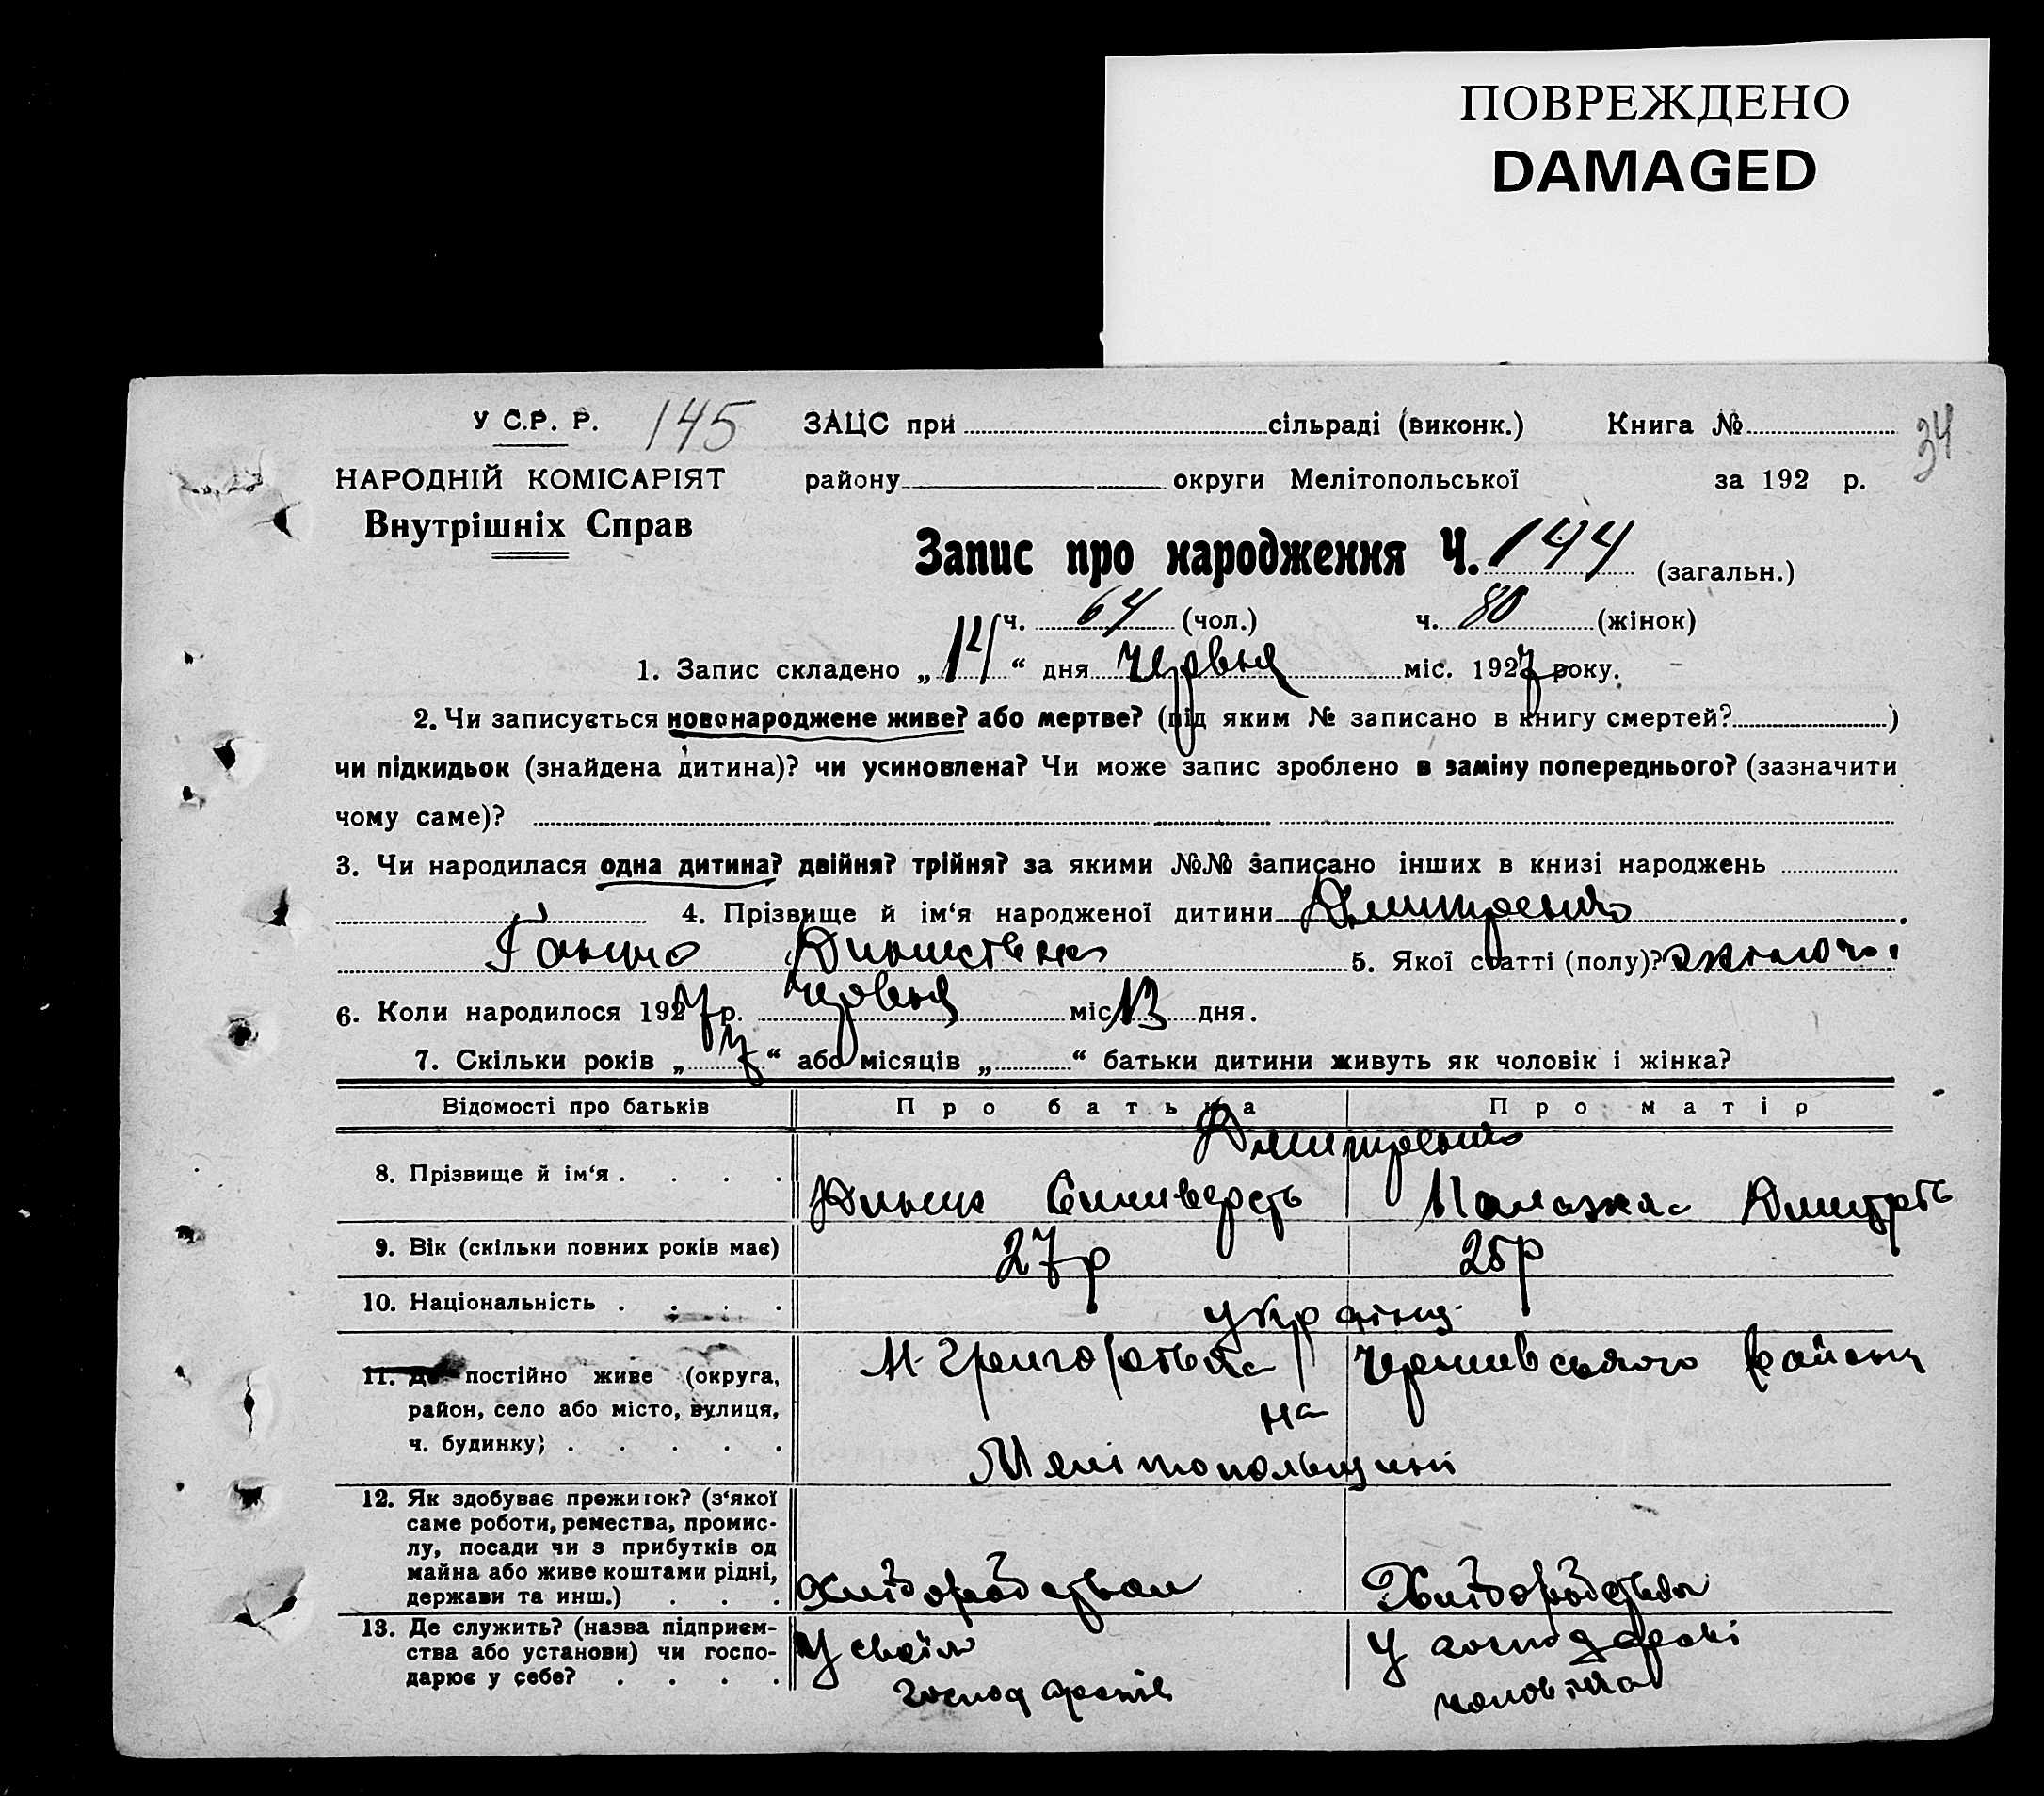 ПОВРЕЖДЕНО
DAMAGED
У С.Р. Р. 145 ЗАЦС при сільраді (виконк.) Книга № 34
НАРОДНІЙ КОМІСАРІЯТ району округи Мелітопольської за 192 р.
Внутрішніх Справ
Запис про народження Ч. 144 (загальн.)
ч. 64 (чол.) ч. 80 (жінок)
1. Запис складено „14“ дня червня міс. 1927 року.
2. Чи записується новонароджене живе? або мертве? (під яким № записано в книгу смертей? )
чи підкидьок (знайдена дитина)? чи усиновлена? Чи може запис зроблено в заміну попереднього? (зазначити
чому саме)?
3. Чи народилася одна дитина? двійня? трійня? за якими №№ записано інших в книзі народжень
4. Прізвище й ім‘я народженої дитини Дмитренко
Ганна 5. Якої статті (полу)?
6. Коли народилося 1927 р. червня міс 13 дня.
7. Скільки років „7“ або місяців „ “ батьки дитини живуть як чоловік і жінка?
Відомості про батьків Про батька Про матір
Дмитренко
8. Прізвище й ім‘я . . . . Палажка
9. Вік (скільки повних років має) 27р 25р
10. Національність . . . . українці
11. Де постійно живе (округа, Чернивського району
район, село або місто, вулиця, на
ч. будинку; . . . . . Мелітопольщині
12. Як здобуває прожиток? (з‘якої
саме роботи, ремества, промис-
лу, посади чи з прибутків од
майна або живе коштами рідні, Хліборобством Хліборобством
держави та инш.) . . .
13. Де служить? (назва підприєм- У своїм У господарстві
ства або установи) чи госпо- господарстві чоловіка
дарює у себе? . . . .